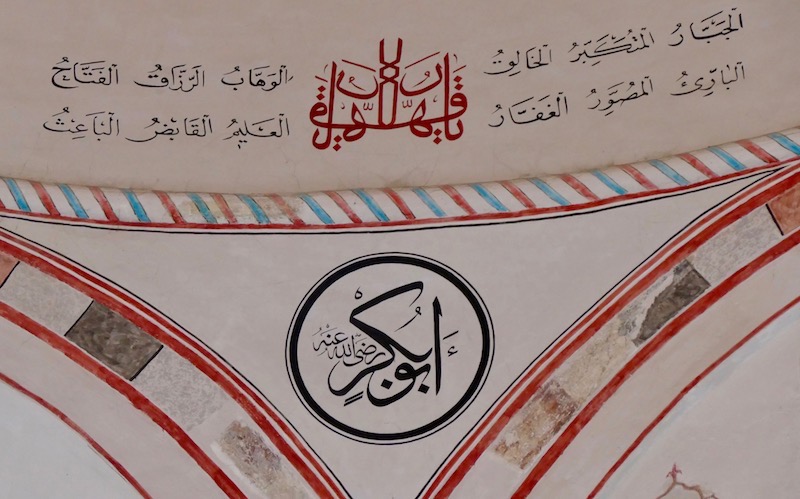 الجَبَّارُ المُتَكَبِّرُ الخَالِقُ
البَارِئُ المُصَوِّرُ الغَفَّارُ
يا قهار
الوَهَّابُ الرَّزَّاقُ الفَتَّاحُ
العَلِيمُ القَابِضُ البَاعِثُ
أَبُو بَكْرٍ رَضِيَ اللّٰهُ عَنْهُ